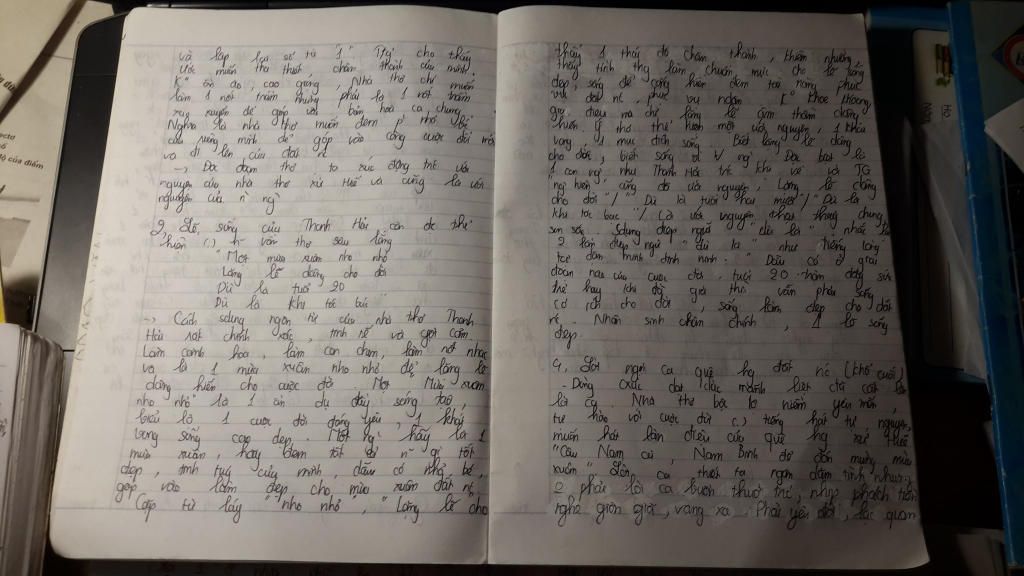 và lặp lại số từ "1" cho thấy
ước muốn tha thiết, chân thành của mình.
K° ồn ào, cao giọng, Nhà thơ chỉ muốn
làm 1 nốt trầm nhưng phải là 1 nốt trầm
xao xuyến để góp với bản hoà ca chung.
Nghĩa là nhà thơ muốn đem p² nhỏ bé
của riêng mình để góp vào công cuộc đổi mới
và đi lên của đất nc
-> Đọc đoạn thơ ta xúc động trc ước
nguyện của nhà thơ xứ Huế và cũng là ước
nguyện của n ng
2, Lẽ sống của Thanh Hải còn đc thể
hiện (.) n vần thơ sau lắng
"Một mùa xuân nho nhỏ
Lặng lẽ dâng cho đời
Dù là tuổi 20
Dù là khi tóc bạc"
-> Cách sdụng ngôn từ của nhà thơ Thanh
Hải rất chính xác, tinh tế và gợi cảm
Làm cành hoa, làm con chim, làm nốt nhạc
và là 1 mùa xuân nho nhỏ để lặng lẽ
dâng hiến cho cuộc đời. Một "Mùa xuân
nho nhỏ" là 1 ẩn dụ đầy sáng tạo,
biểu lộ 1 cuộc đời đáng yêu, 1 khát
vọng sống cao đẹp. Mỗi ng hãy là 1
mùa xuân, hãy đem tất cả n gì tốt
đẹp, tinh tuý của mình, dẫu có nhỏ bé,
góp vào làm đẹp cho mùa xuân đất nc.
Cặp từ láy "nho nhỏ", "Lặng lẽ cho
thấy 1 thái độ chân thành, khiêm nhường,
lấy tình thg làm chuẩn mực cho lẽ sống
đẹp, sống để cống hiến đem tài năng phục
vụ đất nc, phục vụ ndân. K° khoe khoang
gợi, điệu mà chỉ lặng lẽ âm thầm dâng
hiến. Ý thơ thể hiện một ước nguyện, 1 khát
vọng, 1 mục đích sống. Biết lặng lẽ dâng
cho đời, biết sống vì ng. Đọc bài là
1 con ng như Thanh Hải
ng hiến cùng đó ước nguyện "Lặng lẽ dâng
cho đời / "Dù là tuổi hai mươi" / "Dù là
khi tóc bạc" / Là ước nguyện thật thuỷ chung,
son sắt. Sdụng điệp ngữ "dù là" nhắc lại
2 lần điệp ngữ "dù là" như tiếng lòng
tác dặn mình đinh ninh. Dẫu có ở giai
đoạn nào của cuộc đời, tuổi 20 tràn đầy sức
trẻ hay khi đã già thì vẫn phải sống
có ích cho đời, sống làm đẹp cho đất
nc. Nhân sinh chân chính, 1 lẽ sống
đẹp.
4, Lời ngợi ca quê hg đất nc (khổ cuối)
- Dòng xúc đạt đc mãnh liệt
là ca. Nhà thơ bộc lộ niềm yêu mến,
tự hào với cuộc đời (.) tiếng hát tự nguyện,
muốn hát làn điệu của quê hg xứ Huế
"Câu Nam ai, Nam Bình để đón mừng mùa
xuân" Lời ca thiết tha ngàn dặm tình nhưng
2 phải lời ca buồn thuở trc, nhịp phách tiền
nghe giòn giã, vang xa. Phải yêu đời, lạc quan